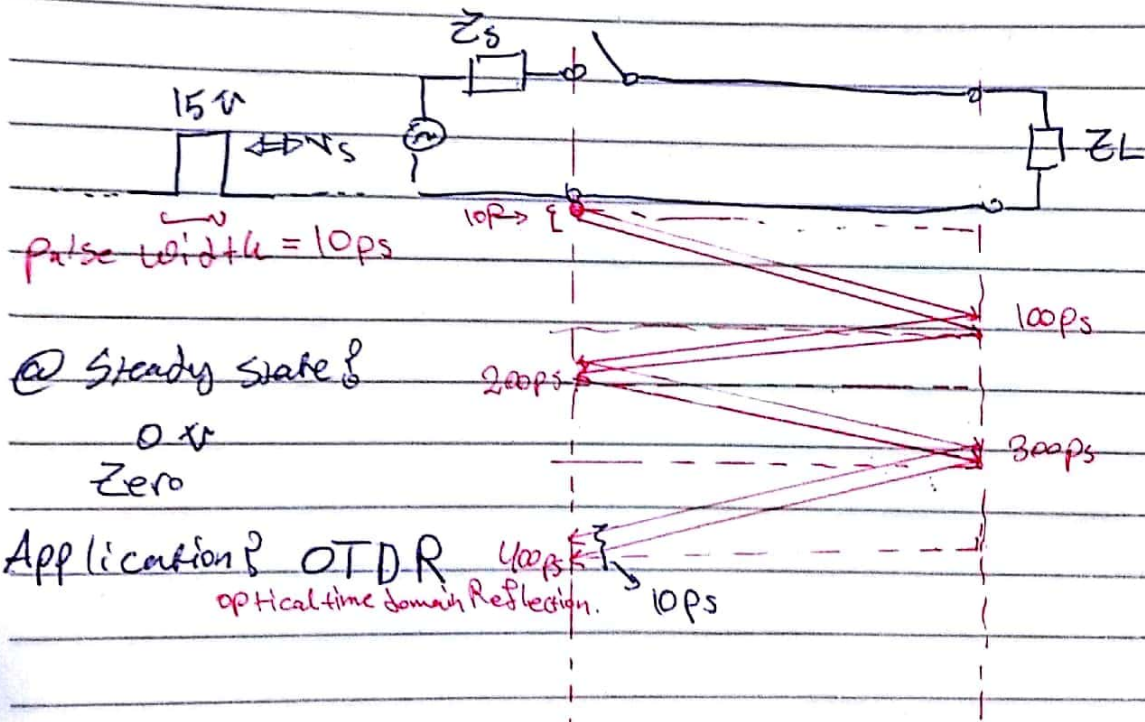 Zs
15 v
Vs
ZL
10P→
Pulse width = 10ps
100ps
@ Steady state:
200ps
0 v
300ps
Zero
Application: OTDR
400ps
optical time domain Reflection.
10ps